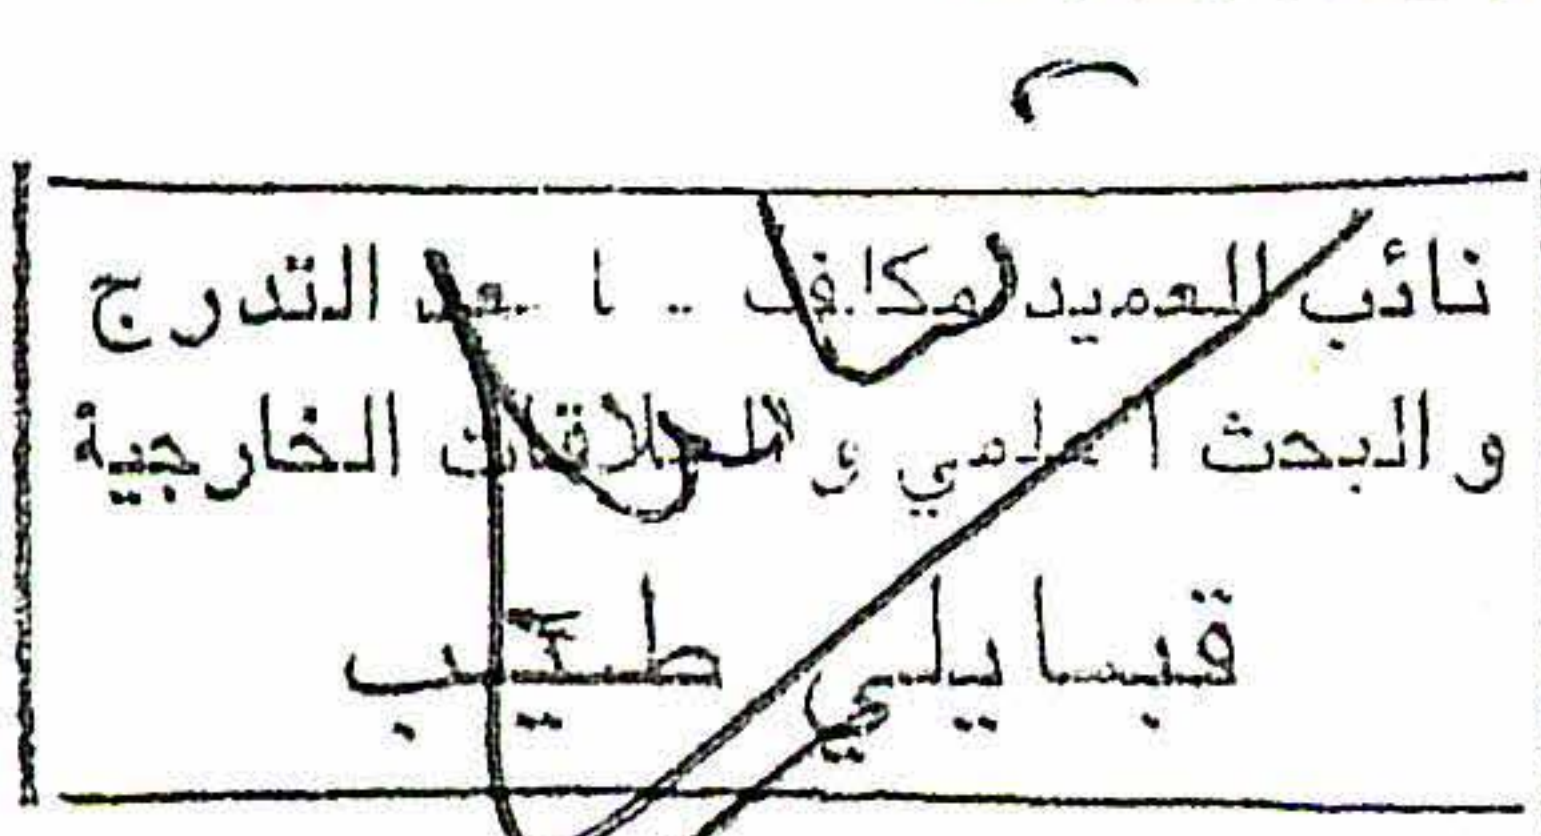 نائب العميد مكلف بما بعد التدرج
و البحث العلمي و العلاقات الخارجية
قبايلي طيّب